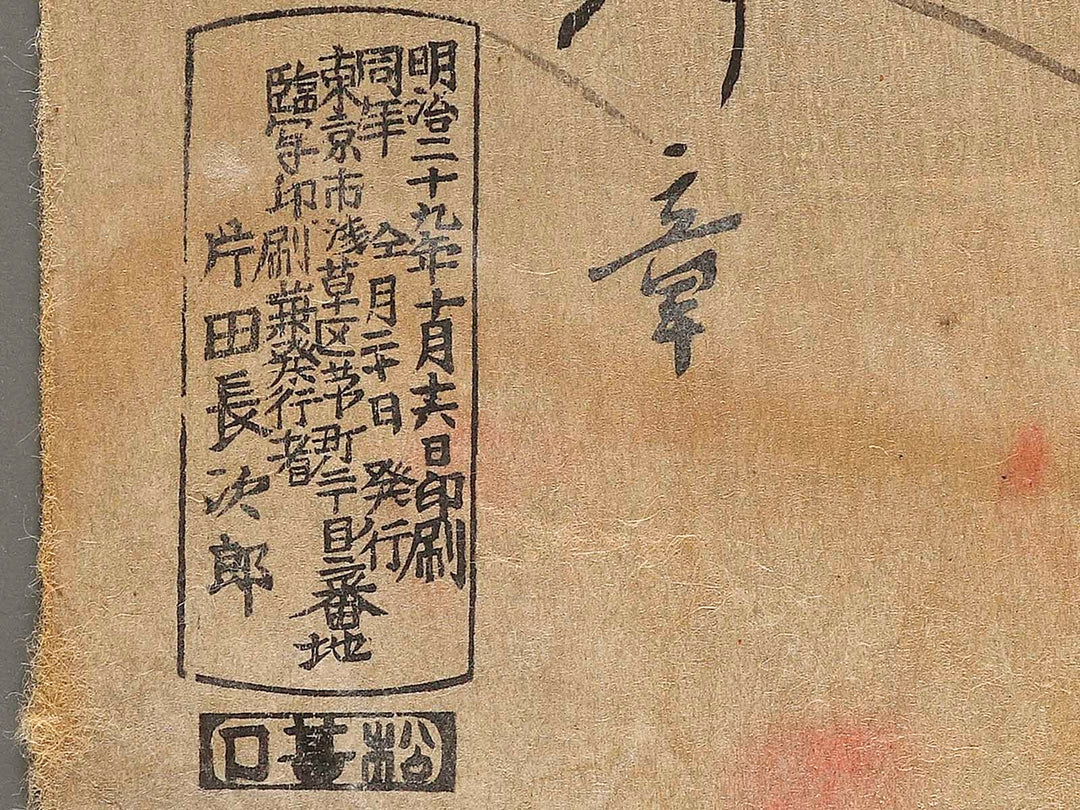 章
明治二十九年十月十六日印刷
同年仝月二十日発行
東京市浅草区茅町二丁目二番地
臨写印刷兼発行者
片田長次郎